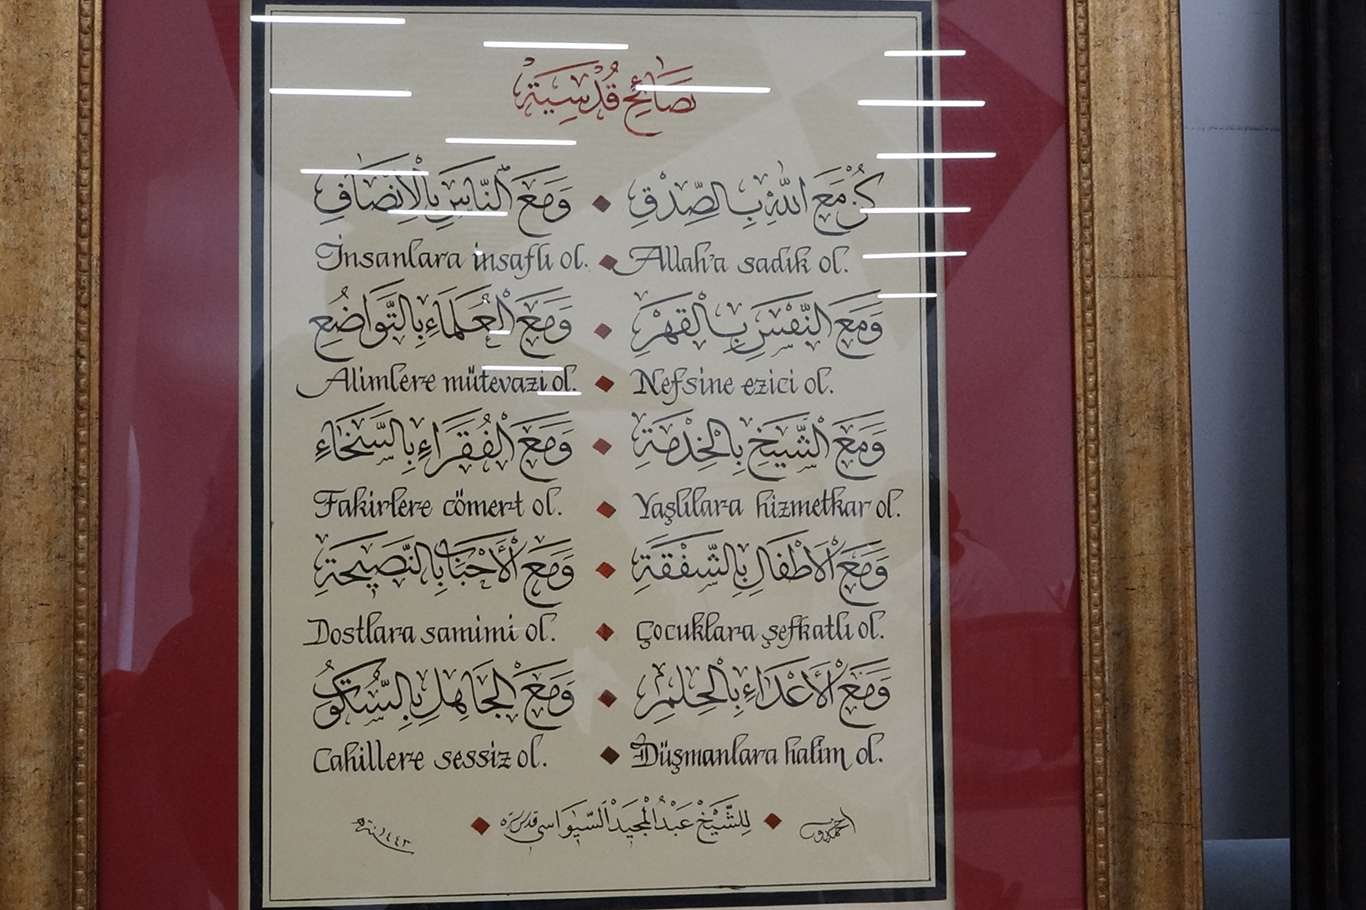 نَصَائِحُ قُدْسِيَّةٌ
كُنْ مَعَ اللّٰهِ بِالصِّدْقِ ◆ وَمَعَ النَّاسِ بِالْاِنْصَافِ
Allah'a sadık ol. ◆ İnsanlara insaflı ol.
وَمَعَ النَّفْسِ بِالْقَهْرِ ◆ وَمَعَ الْعُلَمَاءِ بِالتَّوَاضُعِ
Nefsine ezici ol. ◆ Alimlere mütevazi ol.
وَمَعَ الشَّيْخِ بِالْخِدْمَةِ ◆ وَمَعَ الْفُقَرَاءِ بِالسَّخَاءِ
Yaşlılara hizmetkar ol. ◆ Fakirlere cömert ol.
وَمَعَ الْاَطْفَالِ بِالشَّفْقَةِ ◆ وَمَعَ الْأَحْبَابِ بِالنَّصِيحَةِ
Çocuklara şefkatlı ol. ◆ Dostlara samimi ol.
وَمَعَ الْأَعْدَاءِ بِالْحِلْمِ ◆ وَمَعَ الْجَاهِلِ بِالسُّكُوتِ
Düşmanlara halim ol. ◆ Cahillere sessiz ol.
◆ لِلشَّيْخْ عَبْدُ الْمَجِيدْ اَلسِّيوَاسِى قدس سره ◆ ١٤٤٢